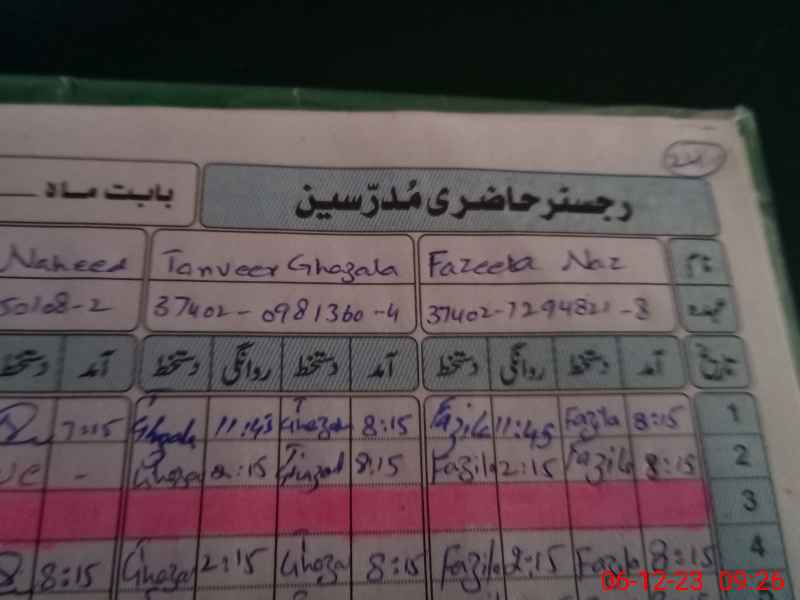 رجسٹر حاضری مُدرّسین بابت ماہ
نام Fazeela Naz Tanveer Ghazala Naheed
عہدہ 37402-7294821-8 37402-0981360-4 50108-2
تاریخ آمد دستخط روانگی دستخط آمد دستخط روانگی دستخط آمد دستخط
1 8:15 Fazila 11:45 Fazila 8:15 Ghazal 11:45 Ghazala 7:15
2 8:15 Fazila 2:15 Fazila 8:15 Ghazal 2:15 Ghazal -
3
4 8:15 Fazila 2:15 Fazila 8:15 Ghazal 2:15 Ghazal 8:15
06-12-23 09:26